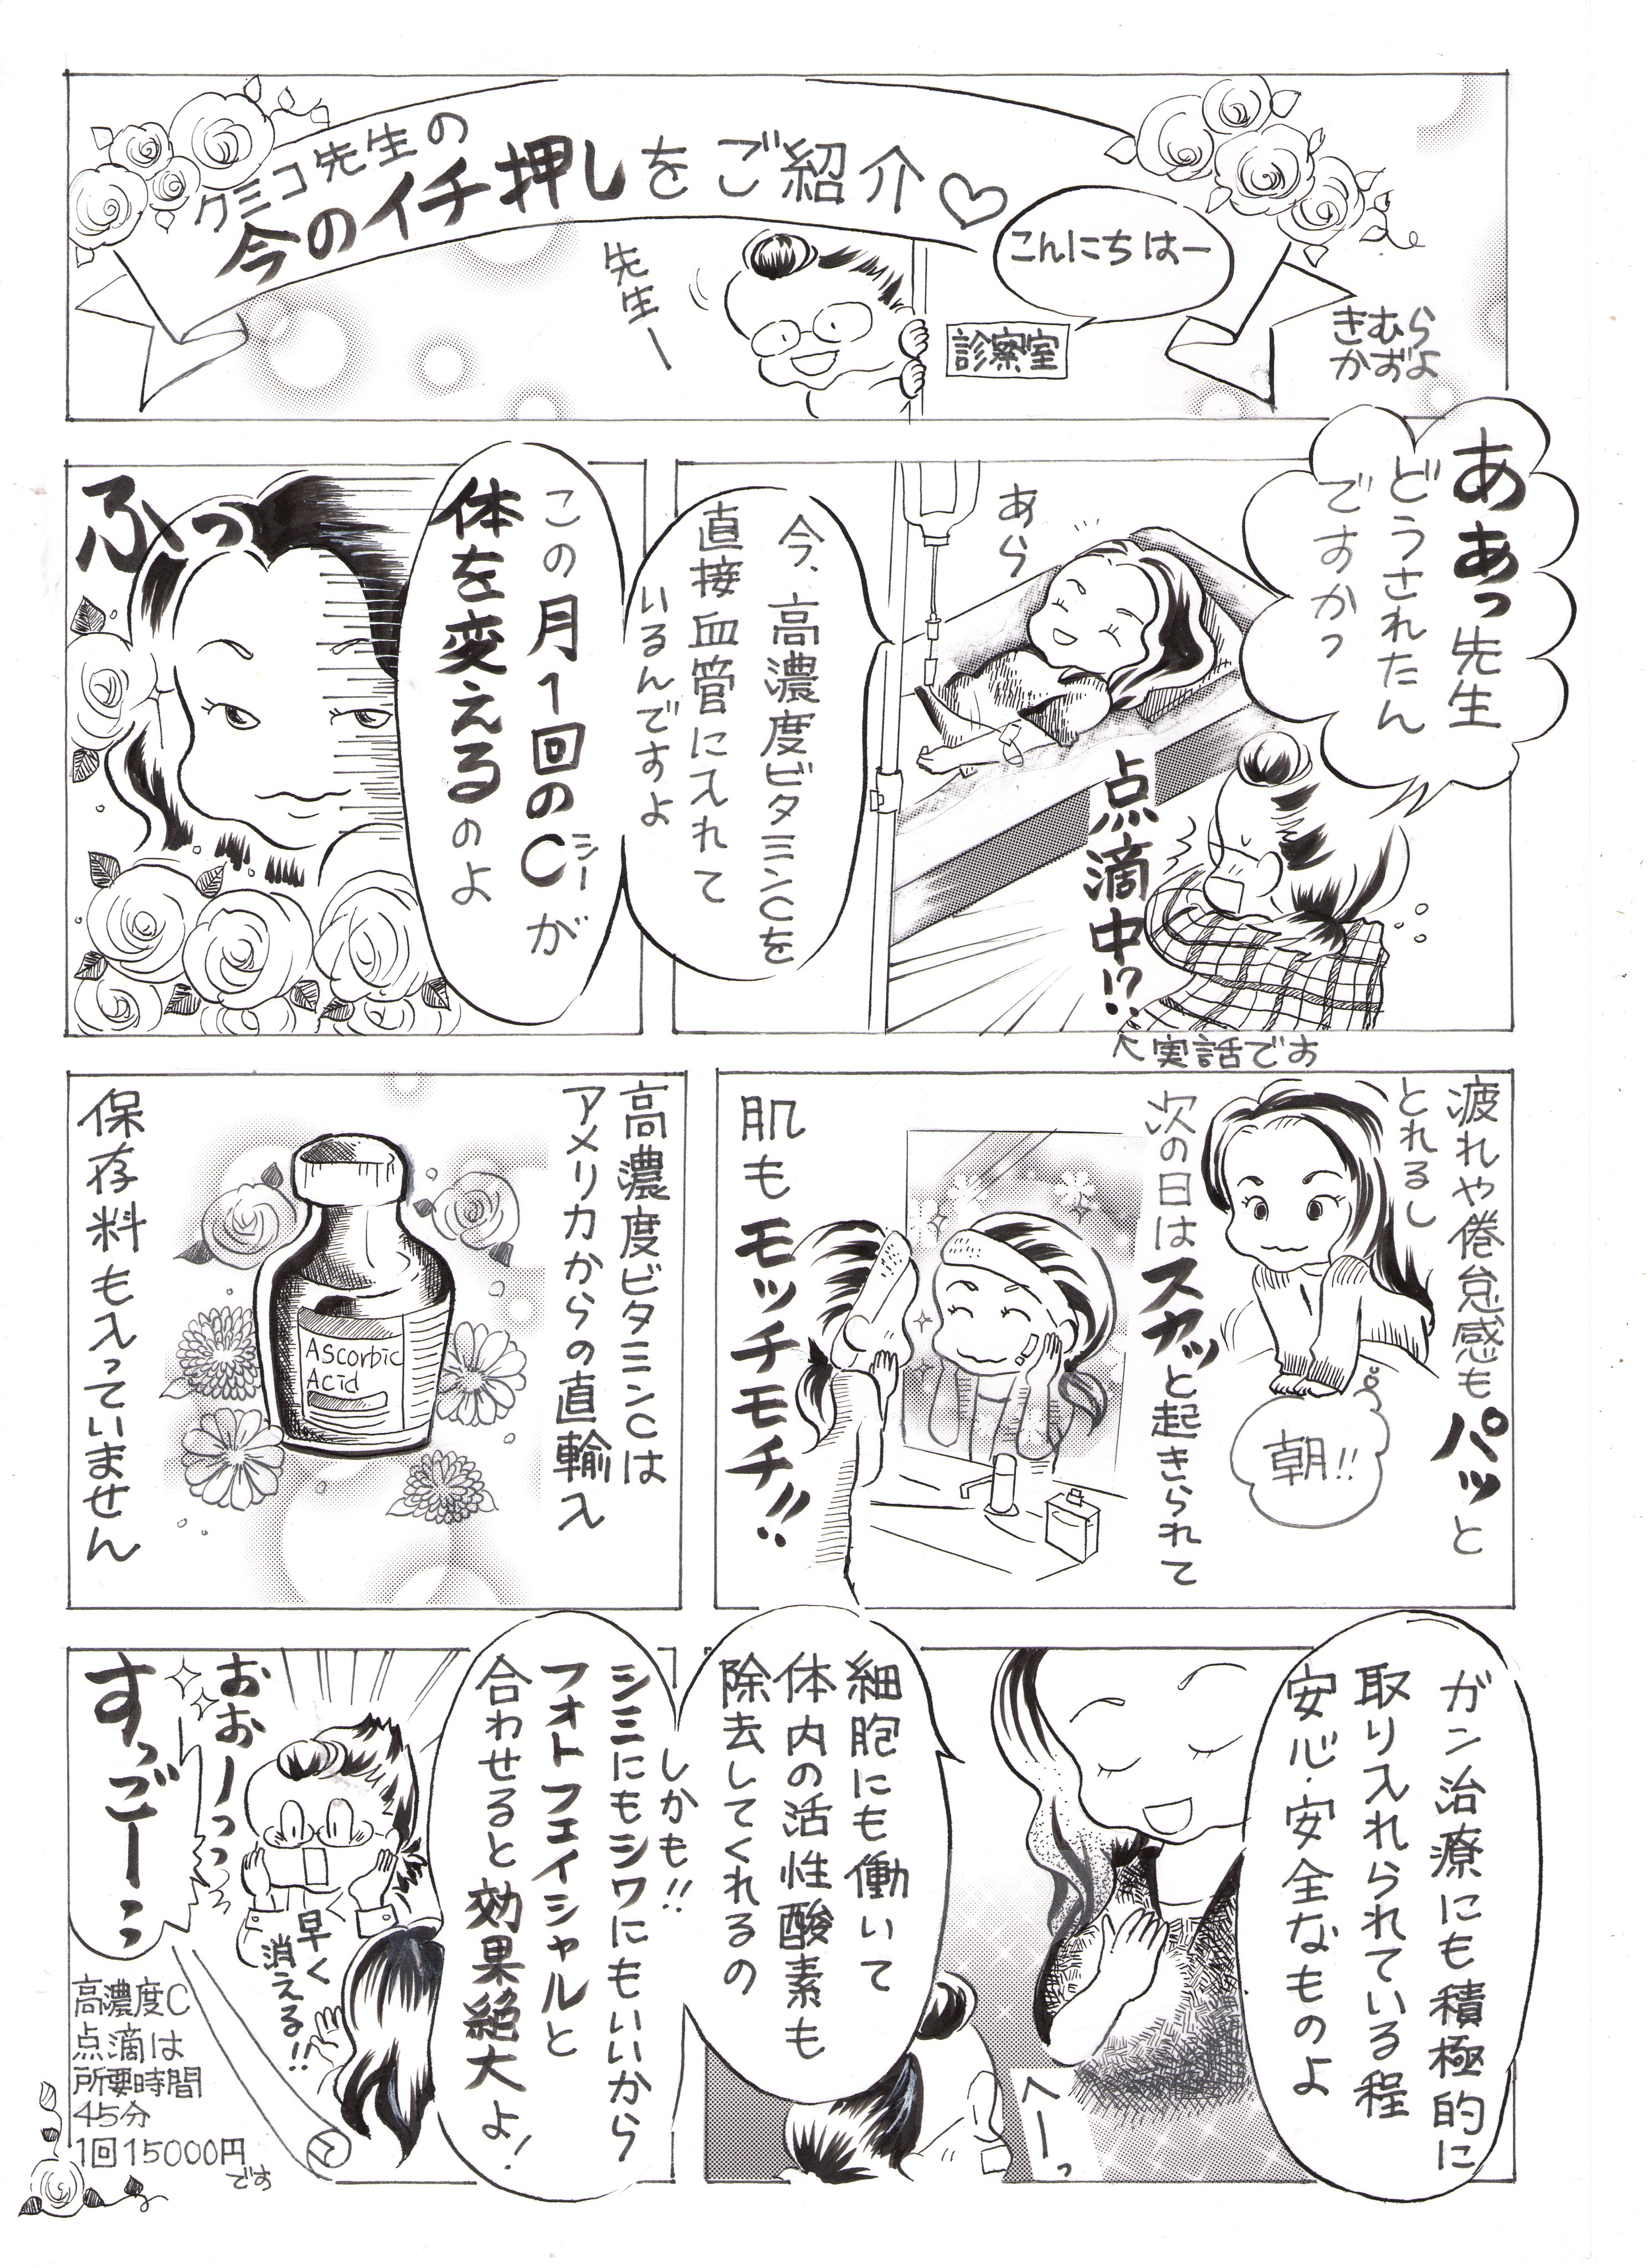 クミコ先生の
今のイチ押しをご紹介♡
こんにちはー
先生ー
診察室
きむら
かずよ
ああっ先生
どうされたん
ですかっ
あら
点滴中!?
↖実話です
今、高濃度ビタミンCを
直接血管に入れて
いるんですよ
この月1回のCが
シー
体を変えるのよ
ふっ
疲れや倦怠感もパッと
とれるし
朝!!
次の日はスカッと起きられて
肌もモッチモチ!!
高濃度ビタミンCは
アメリカからの直輸入
Ascorbic
Acid
保存料も入っていません
ガン治療にも積極的に
取り入れられている程
安心・安全なものよ
へーっ
細胞にも働いて
体内の活性酸素も
除去してくれるの
しかも!!
シミにもシワにもいいから
フォトフェイシャルと
合わせると効果絶大よ!
おおーっっ
すっごーーっ
早く
消える!!
高濃度C
点滴は
所要時間
45分
1回15000円
です